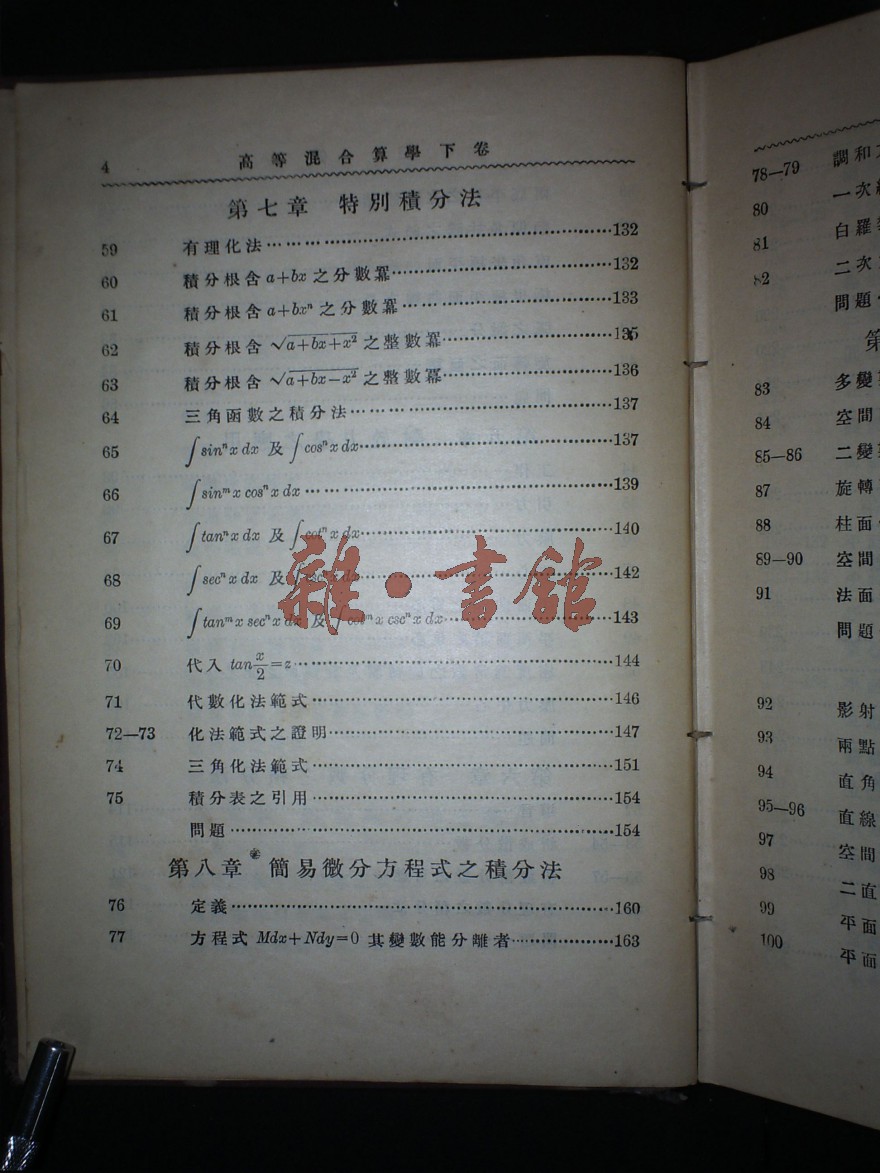 4 高等混合算學下卷
第七章 特別積分法
59 有理化法……132
60 積分根含 a+bx 之分數冪……132
61 積分根含 a+bxⁿ 之分數冪……133
62 積分根含 √a+bx+x² 之整數冪……135
63 積分根含 √a+bx−x² 之整數冪……136
64 三角函數之積分法……137
65 ∫sinⁿx dx 及 ∫cosⁿx dx……137
66 ∫sinᵐx cosⁿx dx……139
67 ∫tanⁿx dx 及 ∫cotⁿx dx……140
68 ∫secⁿx dx 及 ∫cscⁿx dx……142
69 ∫tanᵐx secⁿx dx 及 ∫cotᵐx cscⁿx dx……143
70 代入 tan x/2=z……144
71 代數化法範式……146
72—73 化法範式之證明……147
74 三角化法範式……151
75 積分表之引用……154
問題……154
第八章* 簡易微分方程式之積分法
76 定義……160
77 方程式 Mdx+Ndy=0 其變數能分離者……163
雜·書館
78—79 調和
80 一次
81 白羅
82 二次
問題
第
83 多變
84 空間
85—86 二變
87 旋轉
88 柱面
89—90 空間
91 法面
問題
92 影射
93 兩點
94 直角
95—96 直線
97 空間
98 二直
99 平面
100 平面